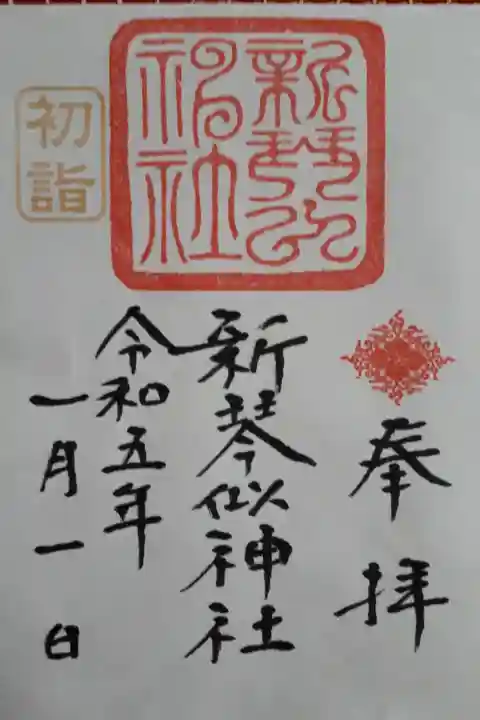 奉拝
新琴似神社
令和五年
一月一日
新琴似
神社
初詣